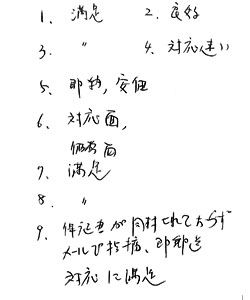 1. 満足 2. 良好
3. 〃 4. 対応速い
5. 即納, 安価
6. 対応面,
価格面
7. 満足
8. 〃
9. 保証書が同封されておらず
メールで指摘、即郵送
対応に満足